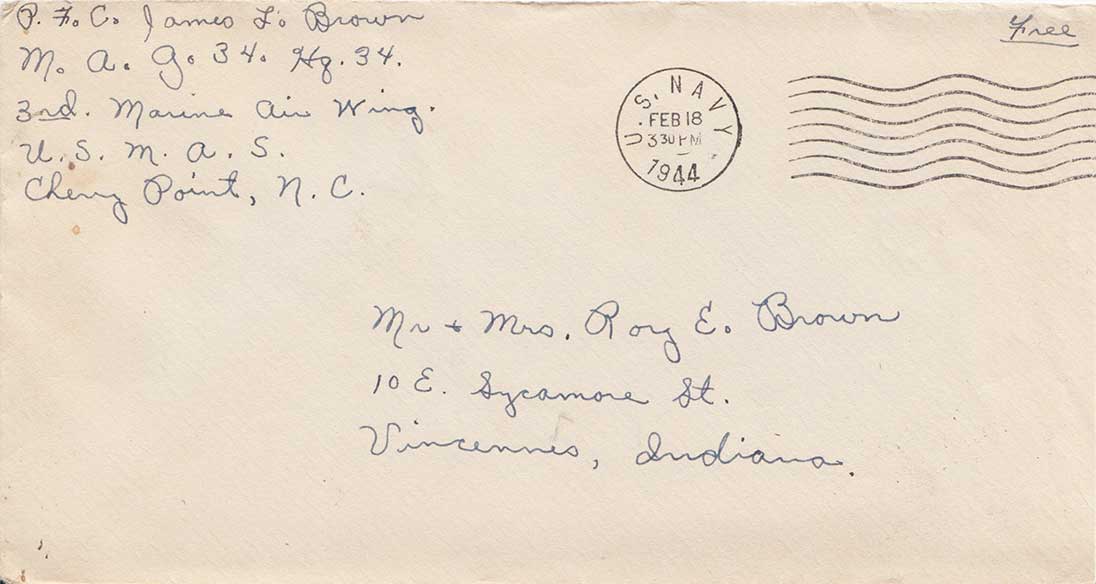 P.F.C. James L. Brown
M. A. G. 34. Hq. 34.
3rd. Marine Air Wing.
U. S. M. A. S.
Cherry Point, N. C.
Free
U.S. NAVY
FEB 18
3 30 PM
1944
Mr + Mrs. Roy E. Brown
10 E. Sycamore St.
Vincennes, Indiana.